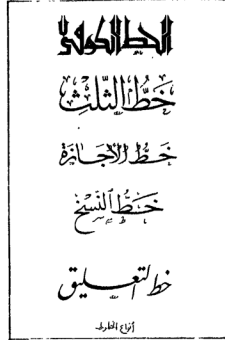 الخط الكوفي
خَطُّ الثُّلُث
خَطُّ الإجَازَة
خَطُّ النَّسْخ
خط التعليق
أنواع الخطوط